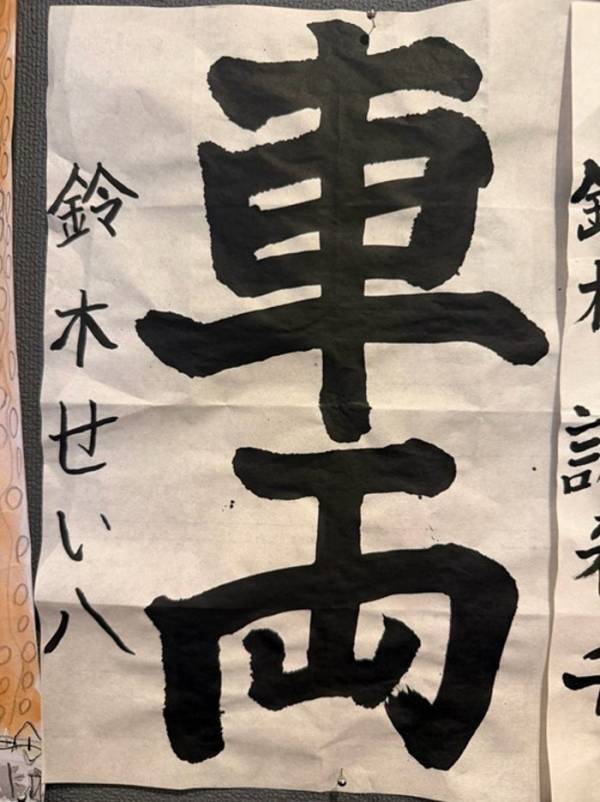 車両
鈴木せい八